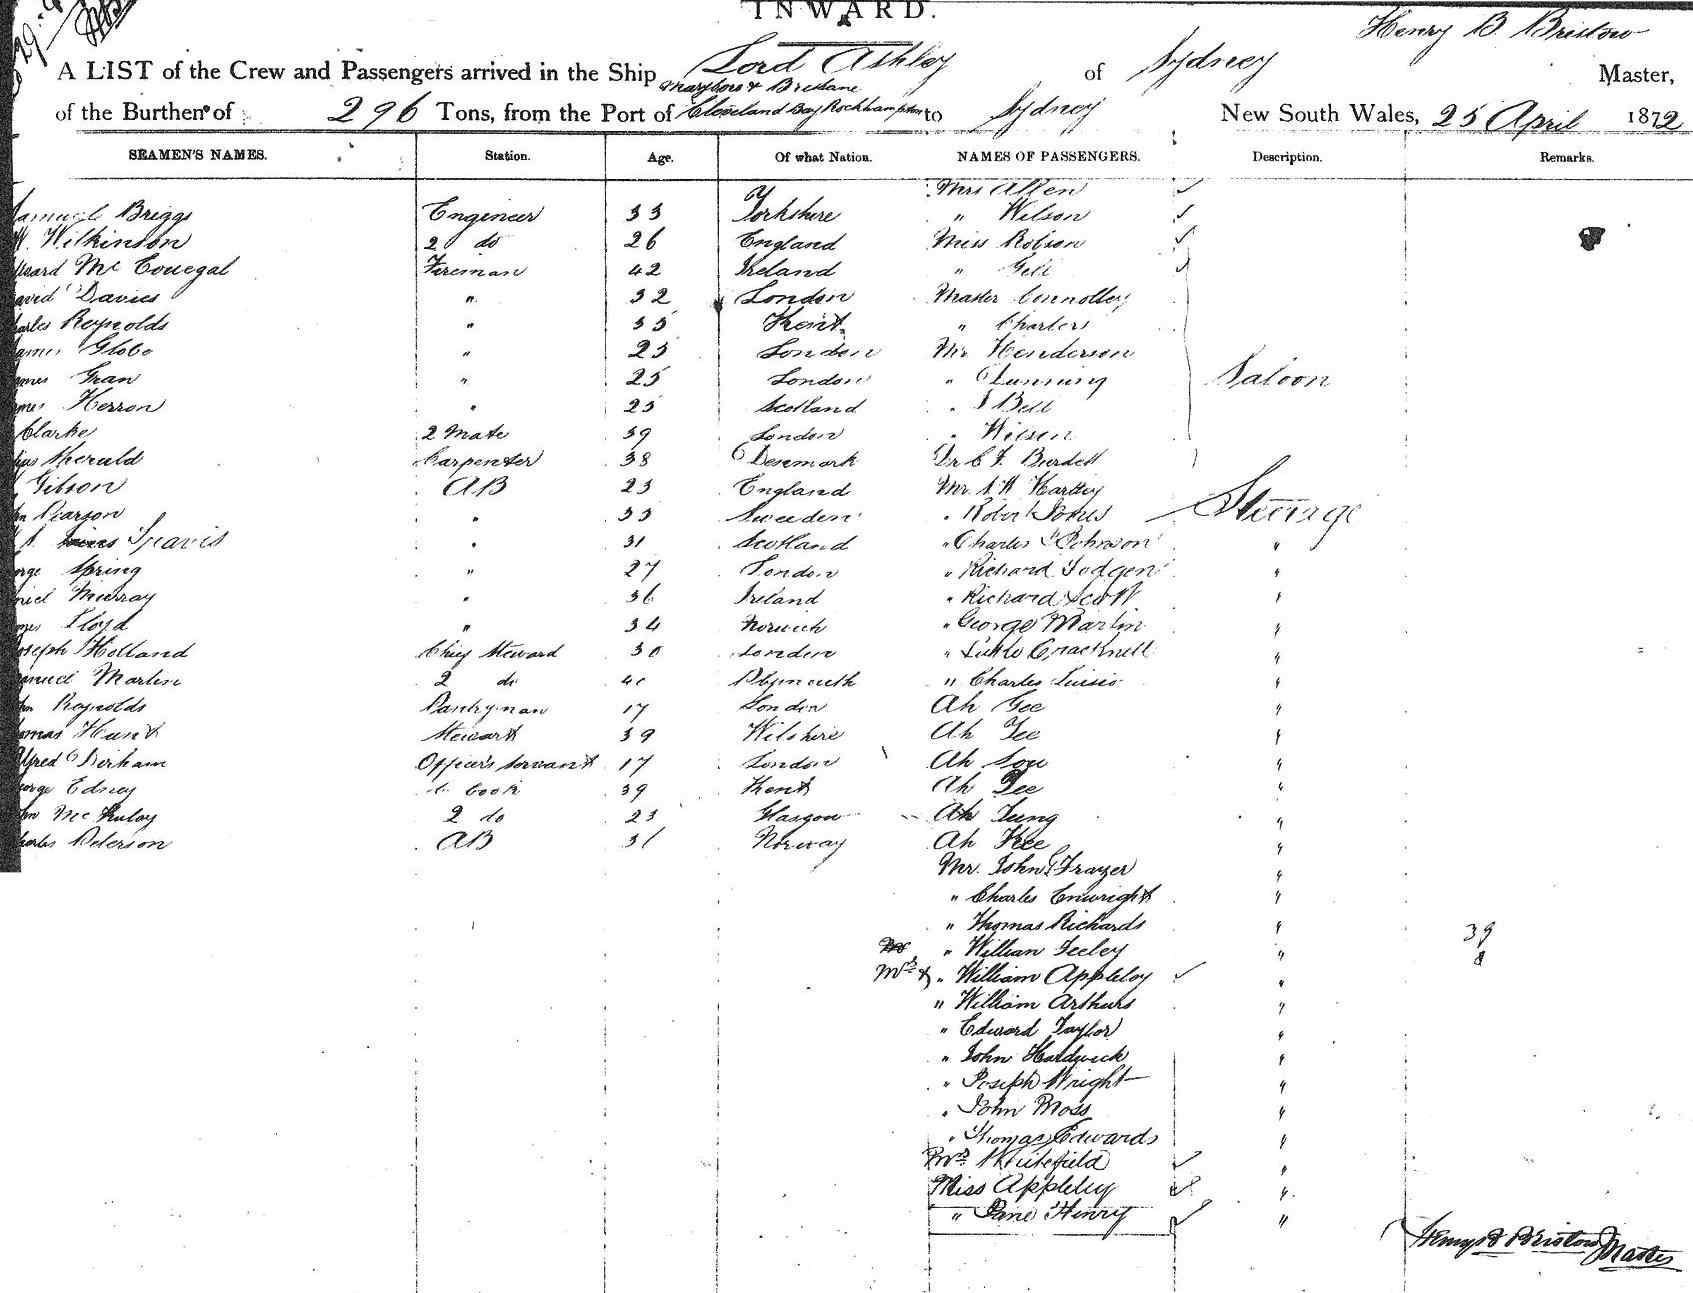 INWARD.
Henry B. Bristow
A LIST of the Crew and Passengers arrived in the Ship Lord Ashley of Sydney Master,
Maryboro & Brisbane
of the Burthen of 296 Tons, from the Port of Cleveland Bay Rockhampton to Sydney New South Wales, 25 April 1872
SEAMEN'S NAMES. Station. Age. Of what Nation. NAMES OF PASSENGERS. Description. Remarks.
Mrs Allen
amuel Briggs Engineer 33 Yorkshire " Wilson
W. Wilkinson 2 do 26 England Miss Robson
Mc Fireman 42 Ireland " Gill
avid Davies " 32 London Master Connolley
harles Reynolds " 35 Kent " Charters
ames Globe " 25 London Mr Henderson
ames Gran " 25 London " Saloon
ames Herron " 25 Scotland " Bell
Clarke 2 Mate 39 London " Wilson
Carpenter 38 Denmark Dr C F Burdett
Gibson AB 23 England Mr Hartley
hn Pearson " 33 Sweeden " Robert Jones Steerage
Travis " 31 Scotland " Charles Johnson "
orge Spring " 27 London " Richard "
niel Murray " 36 Ireland " Richard Scott "
mes Lloyd " 34 Norwich " George Martin "
oseph Holland Chief Steward 30 London " Cracknell "
amuel Martin 2 do 40 Plymouth " Charles "
hn Reynolds Pantryman 17 London Ah Gee "
omas Hunt Steward 39 Wilshire Ah Fee "
lfred Officers Servant 17 London Ah Sou "
eorge Edney Cook 39 Kent Ah Dee "
hn Mc 2 do 23 Glasgow Ah "
harles Peterson AB 31 Norway Ah Kee "
Mr. John Frazer "
" Charles Enwright "
" Thomas Richards " 39
" William Feeley " 8
Mrs & " William Appleby "
" William Arthurs "
" Edward Taylor "
" John Hardwick "
" Joseph Wright "
" John Moss "
" Thomas Edwards "
Mrs Whitefield "
Miss Appleby "
" Jane Henry "
Henry B Bristow Master